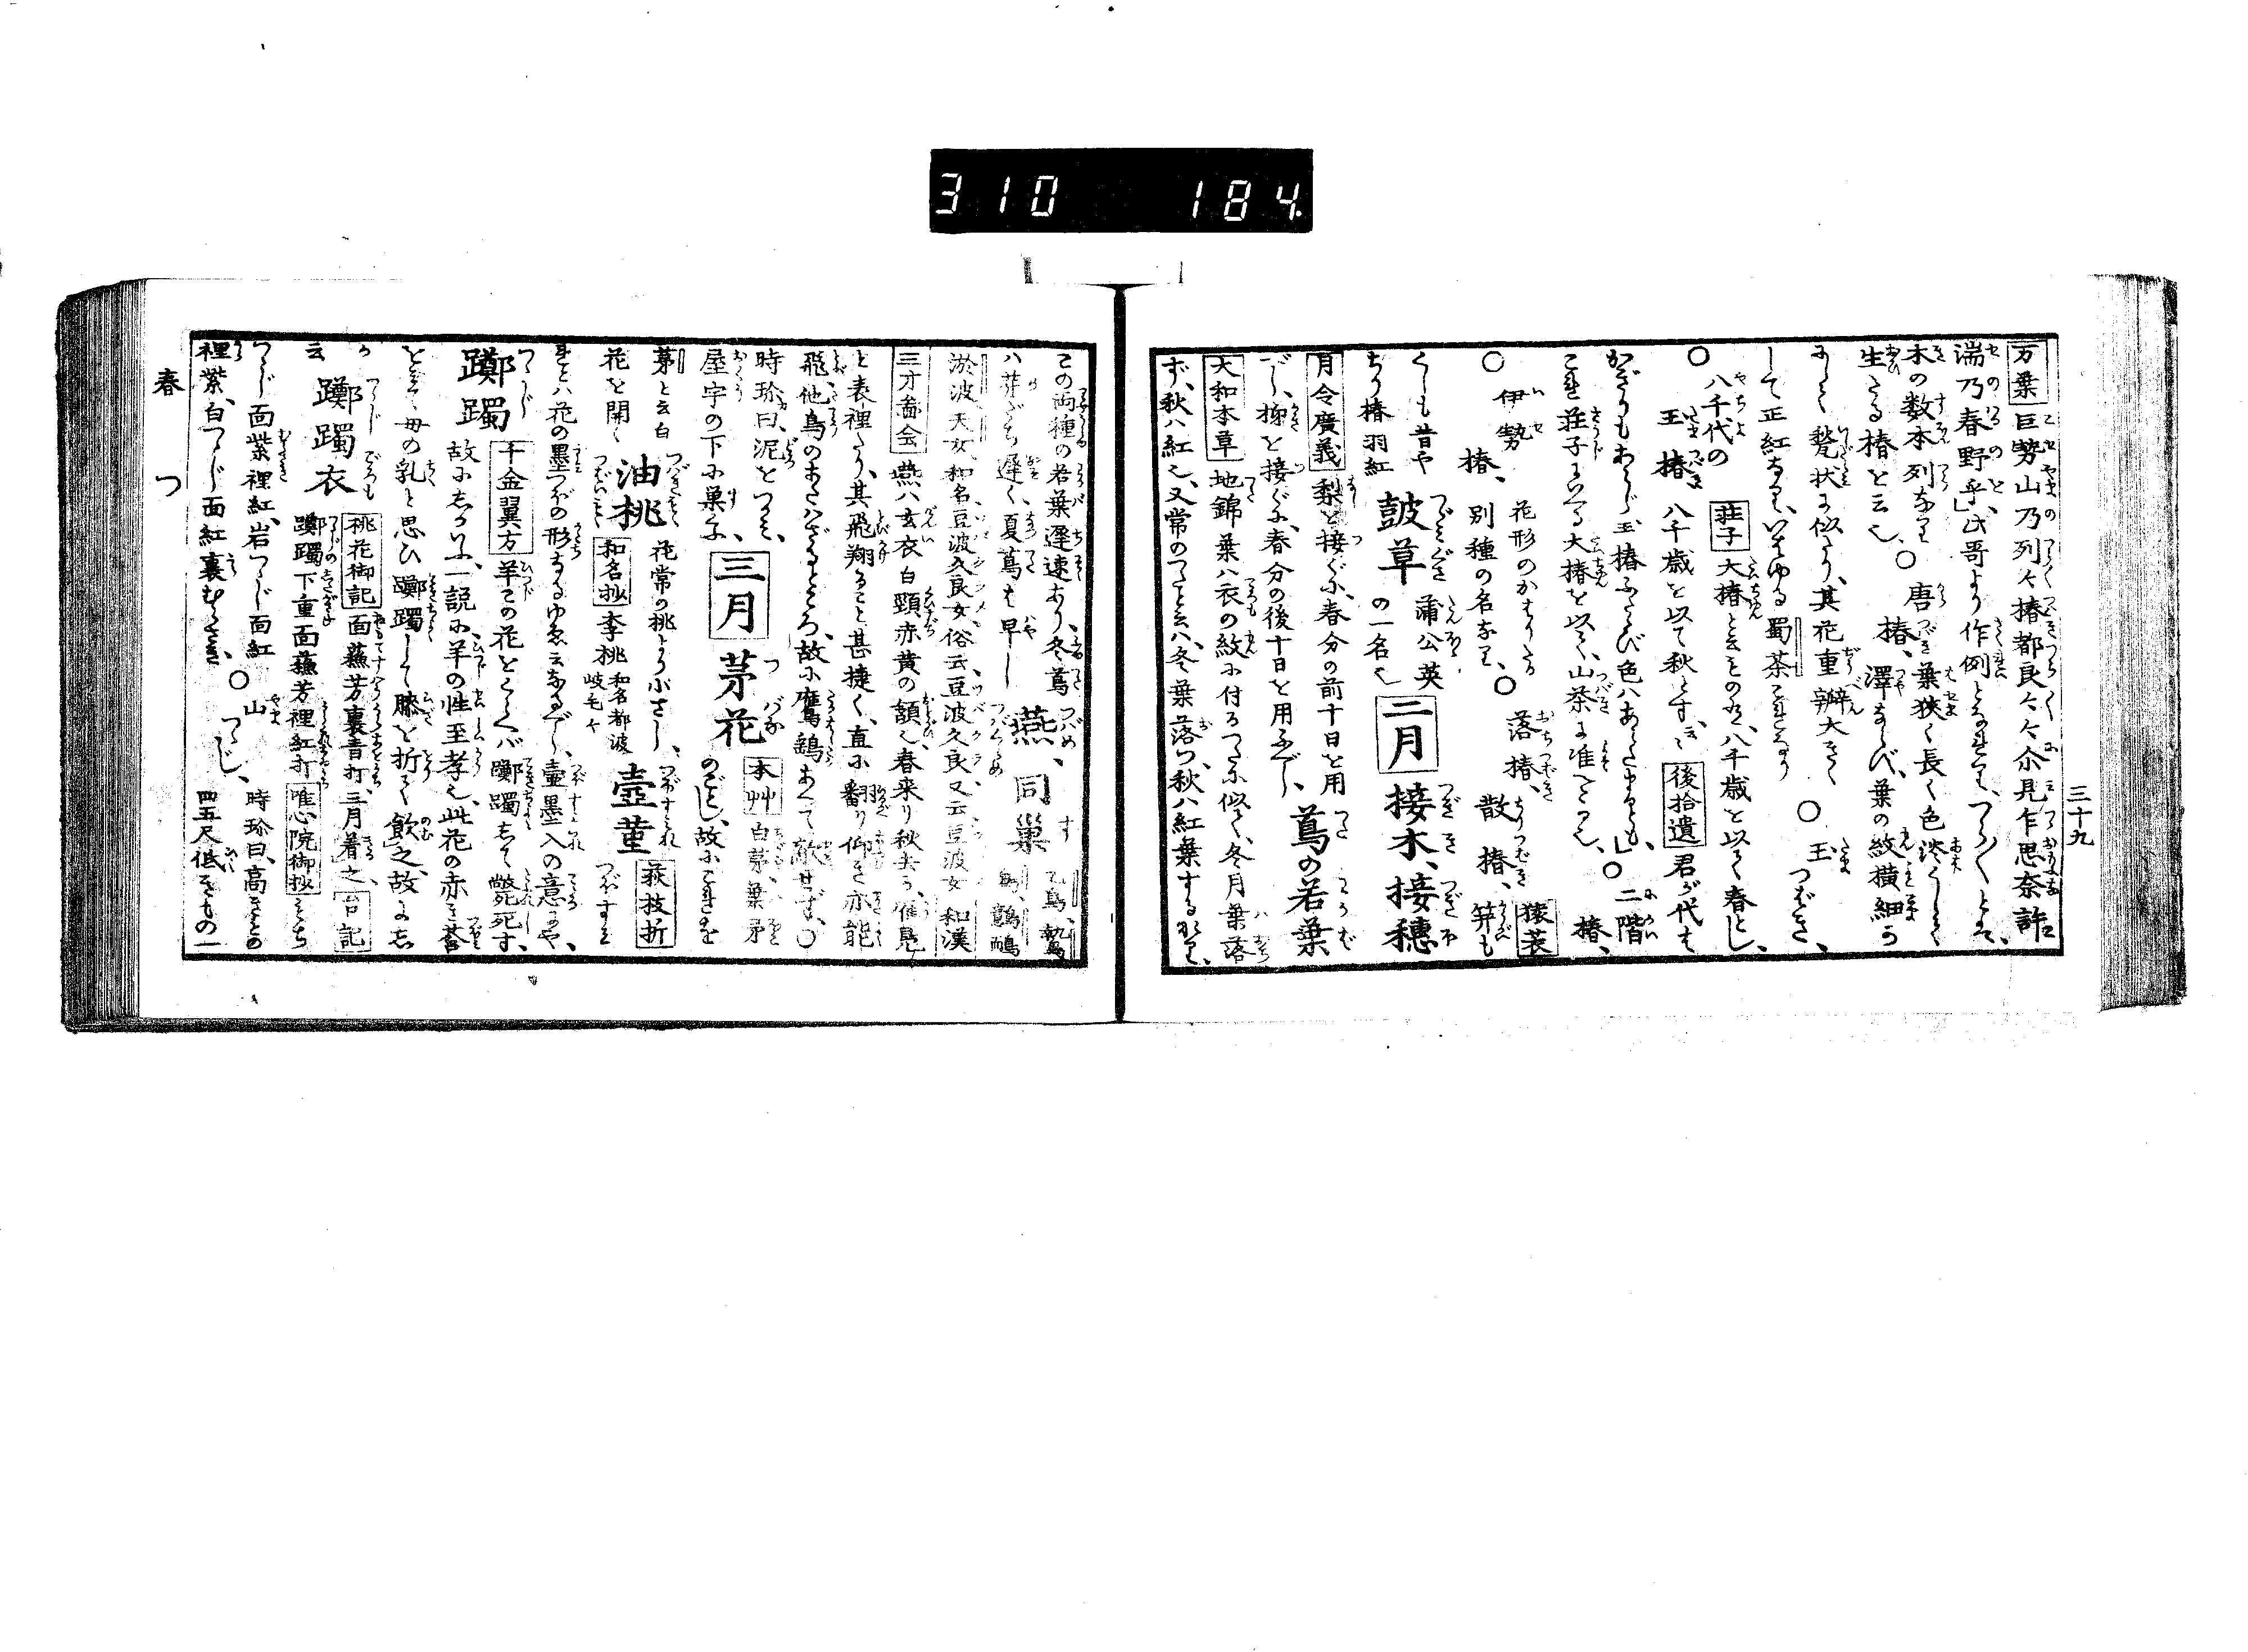 310 184
三十九
万葉 巨勢山乃列々椿都良々々尓見乍思奈許
湍乃春野乎」此哥より作例となれり、つら〳〵とは、
木の数本列なり生たる椿を云也、○唐椿、葉狭く長く色淡くして
澤ならび、葉の紋横細
して甃状に似たり、其花重瓣大きく
して正紅なり、いはゆる蜀茶これなり ○玉つばき、
○八千代の玉椿 荘子 大椿といふもの是、八千歳を以て春とし、
八千歳を以て秋とす、 後拾遺 君が代は
かぎりもあらじ玉椿ふたゝび色はあらたまるとも、」○二階椿、
これ荘子にいへる大椿を以て、山茶に准ぜる也、
○伊勢椿、花形のかはりたる別種の名なり、○落椿、散椿、 猿蓑 笄も
くしも昔やちり椿 羽紅 鼓草 蒲公英の一名也 二月 接木、接穂
月令廣義 梨を接ぐに、春分の前十日を用
べし、を接ぐに、春分の後十日を用ふべし、 蔦の若葉
大和本草 地錦葉ハ衣の紋に付るつたに似て、冬月葉落
ず、秋ハ紅也、又常のつたと云ハ、冬葉落つ、秋ハ紅葉する
この両種の若葉遅速あり、冬蔦
ハ芽だち遅く、夏蔦は早し 燕、同巣 乙鳥、鷾鴯
淤波天女、和名豆波久良女、俗云豆波久良、又云豆波女 和漢
三才畗会 燕ハ玄衣白頸赤黄の頷也、春来り秋去る、
と表裡たり、其飛翔ること甚捷く、直に翻り仰き亦能
飛、他鳥のあたはざるところ、故に鷹鷂あへて敵せず、○
時珍曰、泥をつくみ、
屋宇の下に巣くふ、 三月 茅花 本艸 白茅、葉矛
のごとし、故にこれを
茅と云、白花を開く 油桃 花常の桃より小さし、
和名抄 李桃 和名都波岐毛々 壺菫 荻枝折 つぼすみ
れとハ花の墨つぼの形なるゆゑ云なるべし、壷墨入の意にや、
躑躅 千金翼方 羊この花をくらへバ躑躅して斃死す、
故に名づく、一説に、羊の性至孝也、此花の赤き莟
を見て母の乳と思ひ躑躅して膝を折て飲之、故に名
云 躑躅衣 桃花御記 面蘓芳裏青打、三月着之、 台記
躑躅下重面蘓芳裡紅打 唯心院御抄 もち
つゝじ面紫裡紅、岩つゝじ面紅
裡紫、白つゝじ面紅裏むらさき、○山つゝじ、時珍曰、高きもの四五尺低きもの一
春 つ